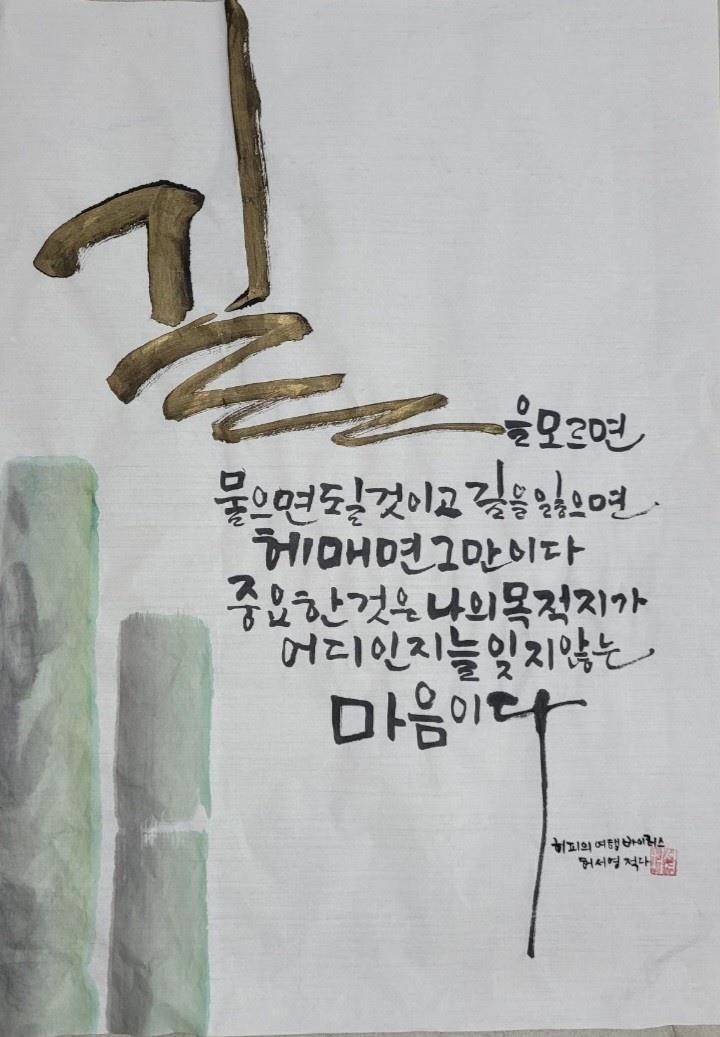 길을모르면
물으면될것이고길을잃으면
헤매면그만이다
중요한것은나의목적지가
어디인지늘잊지않는
마음이다
히피의여행바이러스
허서영적다